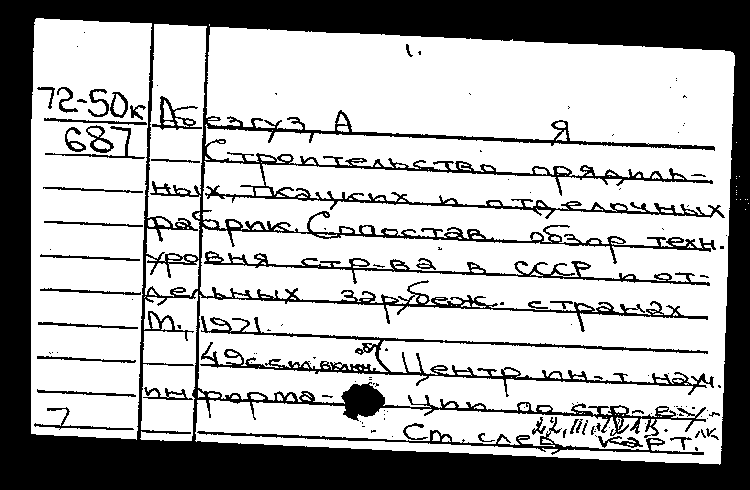 1.
72-50к
687
Абезгуз, А Я
Строительство прядиль-
ных, ткацких и отделочных
фабрик. Сопостав. обзор техн.
уровня стр-ва в СССР и от-
дельных зарубеж. странах
М., 1971.
49 с. с ил., включ. обл. (Центр. ин-т науч.
информа- ции по стр-ву
7 Ст. след. карт.